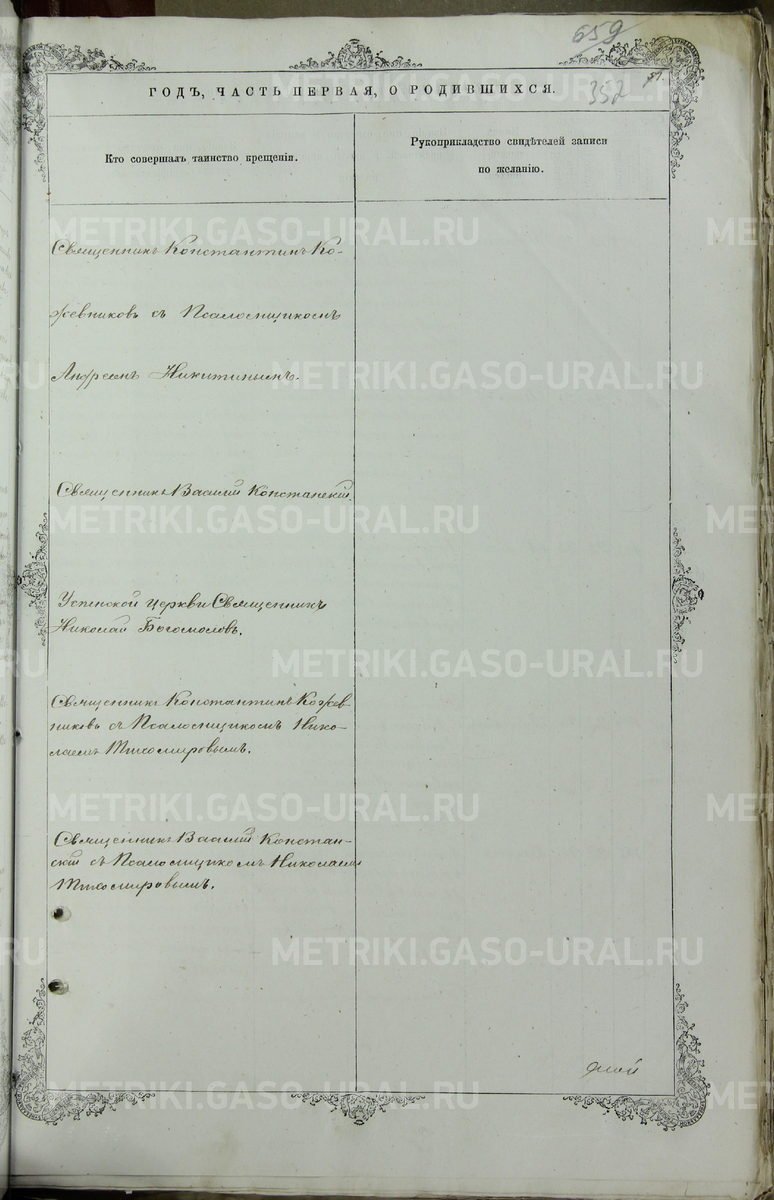 659
352
ГОДЪ, ЧАСТЬ ПЕРВАЯ, О РОДИВШИХСЯ.
Кто совершалъ таинство крещенія.
Рукоприкладство свидѣтелей записи
по желанію.
Священникъ Константинъ Ко-
жевниковъ съ Псаломщикомъ
Андреемъ Никитинымъ.
Священникъ Василій Констанскій.
Успенской церкви Священникъ
Николай Богомоловъ.
Священникъ Константинъ Кожев-
никовъ съ Псаломщикомъ Нико-
лаемъ Тихомировымъ.
Священникъ Василій Констан-
скій съ Псаломщикомъ Николаемъ
Тихомировымъ.
METRIKI.GASO-URAL.RU